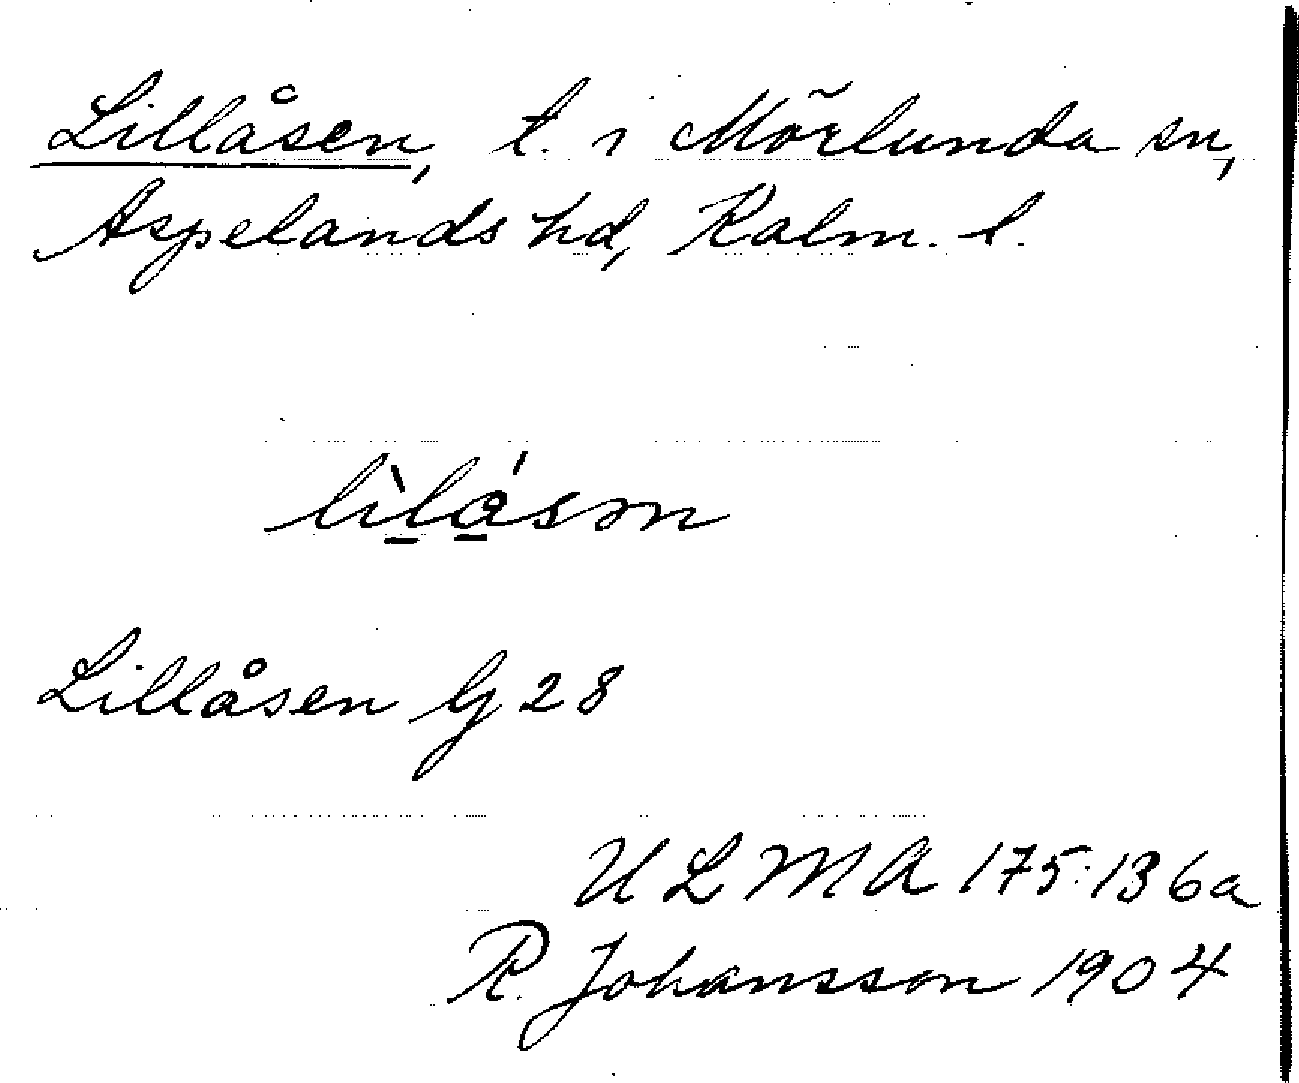 Lillåsen, t. i Mörlunda sn,
Aspelands hd, Kalm. l.
Lillåsen G 28
ULMA 175:136a
R. Johansson 1904